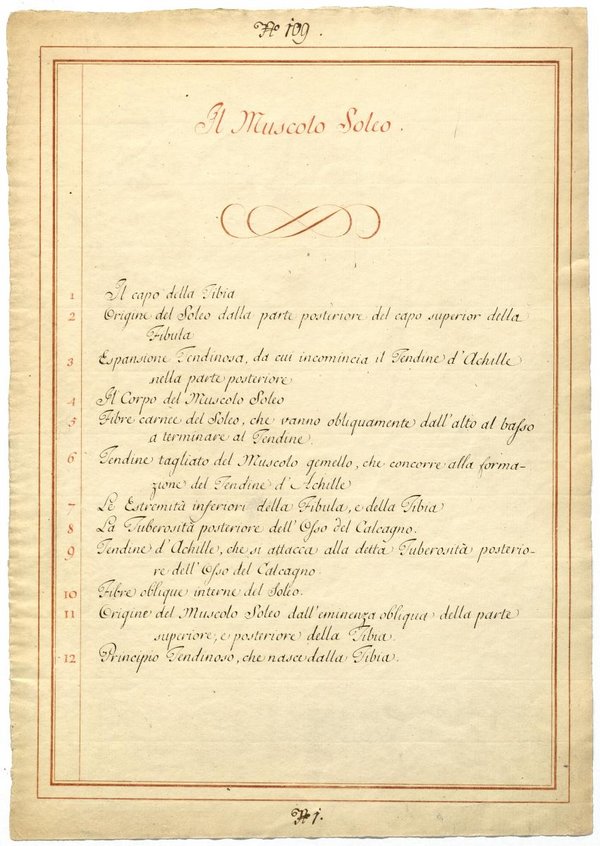 Nº 109.
Il Muscolo Soleo.
1 Il capo della Tibia
2 Origine del Soleo dalla parte posteriore del capo superior della
Fibula
3 Espansione Tendinosa, da cui incomincia il Tendine d'Achille
nella parte posteriore
4 Il Corpo del Muscolo Soleo
5 Fibre carnee del Soleo, che vanno obliquamente dall'alto al basso
a terminare al Tendine.
6 Tendine tagliato del Muscolo gemello, che concorre alla forma-
zione del Tendine d'Achille
7 Le Estremità inferiori della Fibula, e della Tibia
8 La Tuberosità posteriore dell'Osso del Calcagno.
9 Tendine d'Achille, che si attacca alla detta Tuberosità posterio-
re dell'Osso del Calcagno.
10 Fibre oblique interne del Soleo.
11 Origine del Muscolo Soleo dall'eminenza obliqua della parte
superiore, e posteriore della Tibia.
12 Principio Tendinoso, che nasce dalla Tibia.
Nº 1.